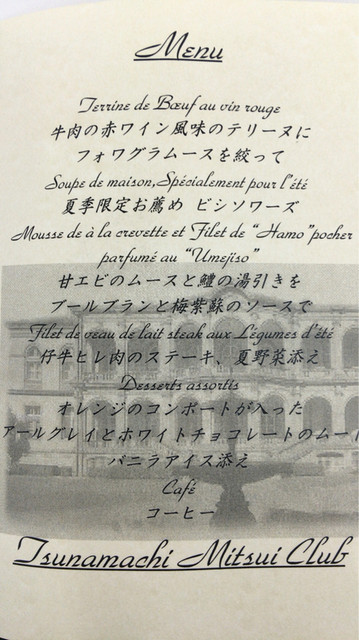 Menu
Terrine de Bœuf au vin rouge
牛肉の赤ワイン風味のテリーヌに
フォワグラムースを絞って
Soupe de maison, Spécialement pour l'été
夏季限定お薦め ビシソワーズ
Mousse de à la crevette et Filet de "Hamo" pocher
parfumé au "Umejiso"
甘エビのムースと鱧の湯引きを
ブールブランと梅紫蘇のソースで
Filet de veau de lait steak aux Légumes d'été
仔牛ヒレ肉のステーキ、夏野菜添え
Desserts assortis
オレンジのコンポートが入った
アールグレイとホワイトチョコレートのムー
バニラアイス添え
Café
コーヒー
Tsunamachi Mitsui Club